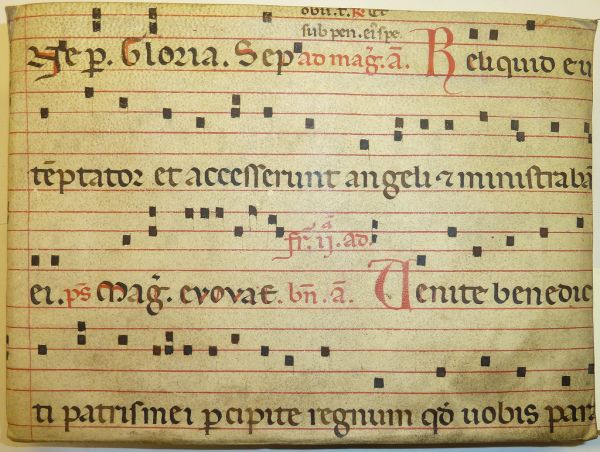 sub pen. eiꝰ spe.
Ne p̱. Gloria. Sep ad mag̃. ā. Reliquid eu
tēptator et accesserunt angeli ⁊ ministrabā
fr̄. ij.ᵃ ad.
ei. p̄s Mag̃. evovae. bn̄. ā. Venite benedic
ti patris mei p̱cipite regnum qđ uobis par